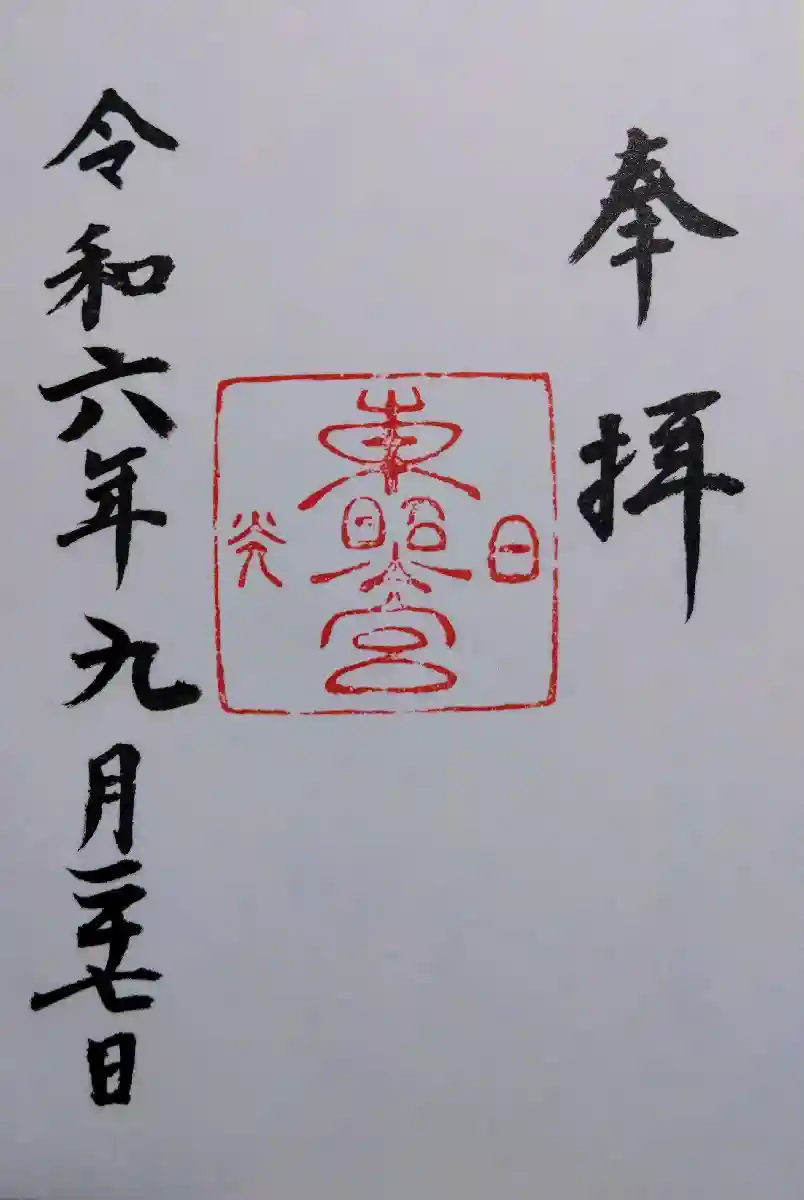 奉拝
日光
東照宮
令和六年九月二十七日